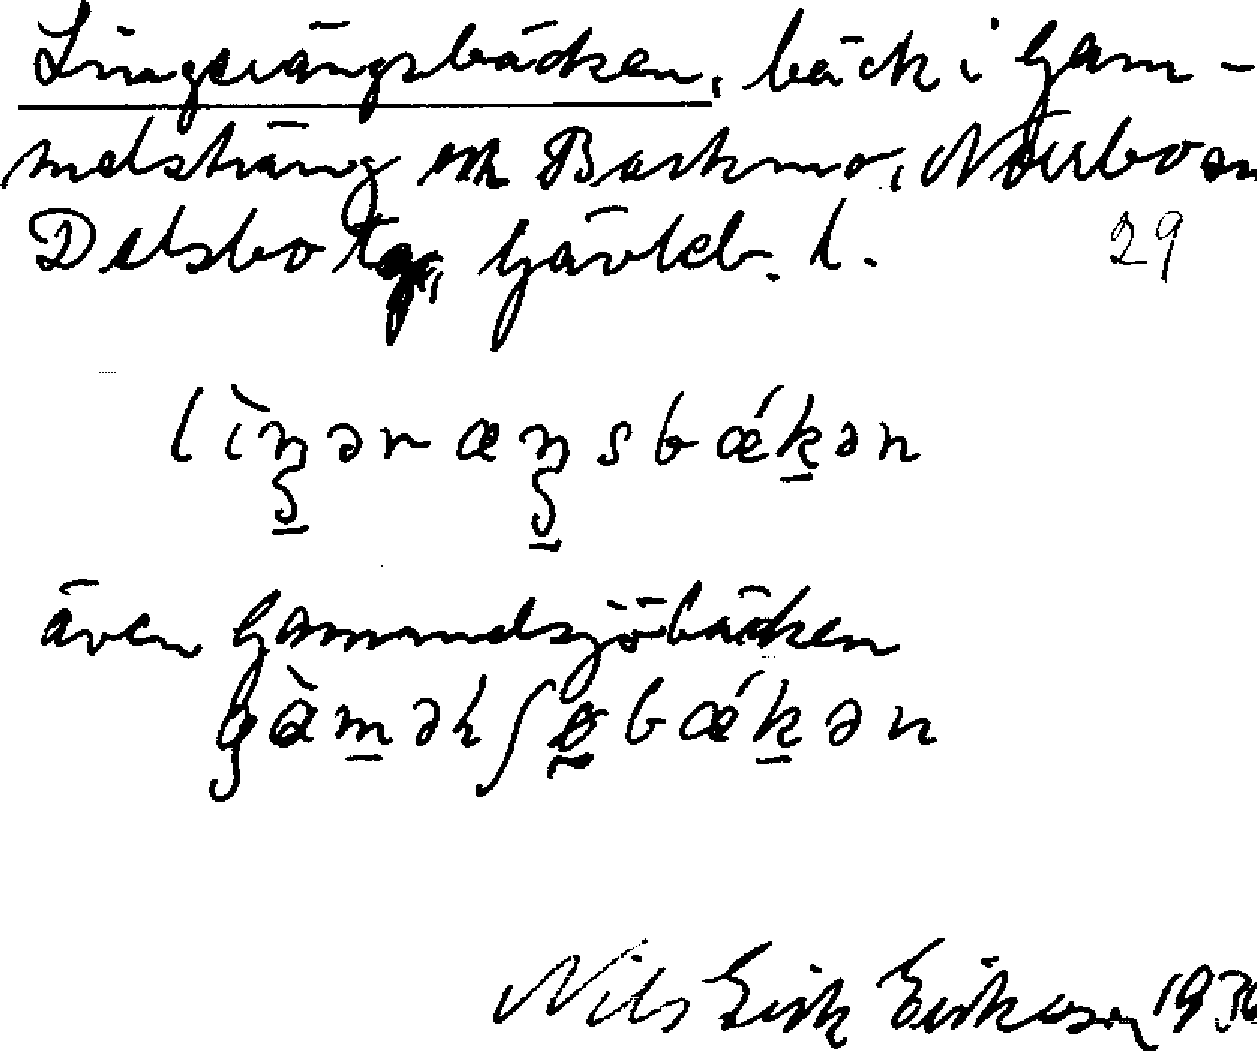 Lingerängsbäcken, bäck i Gam-
melsträng och Backmo, Norrbo sn
Delsbo tg, Gävleb. l. 29
lìŋəræŋsbǽkən
även Gammelsjöbäcken
gàməlʃøbǽkən
Nils Erik Eriksson 19